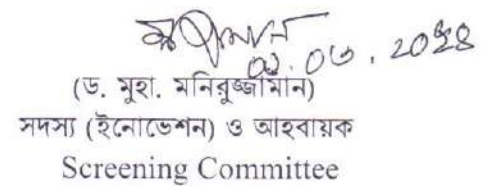 (ড. মুহা. মনিরুজ্জামান)
সদস্য (ইনোভেশন) ও আহবায়ক
Screening Committee